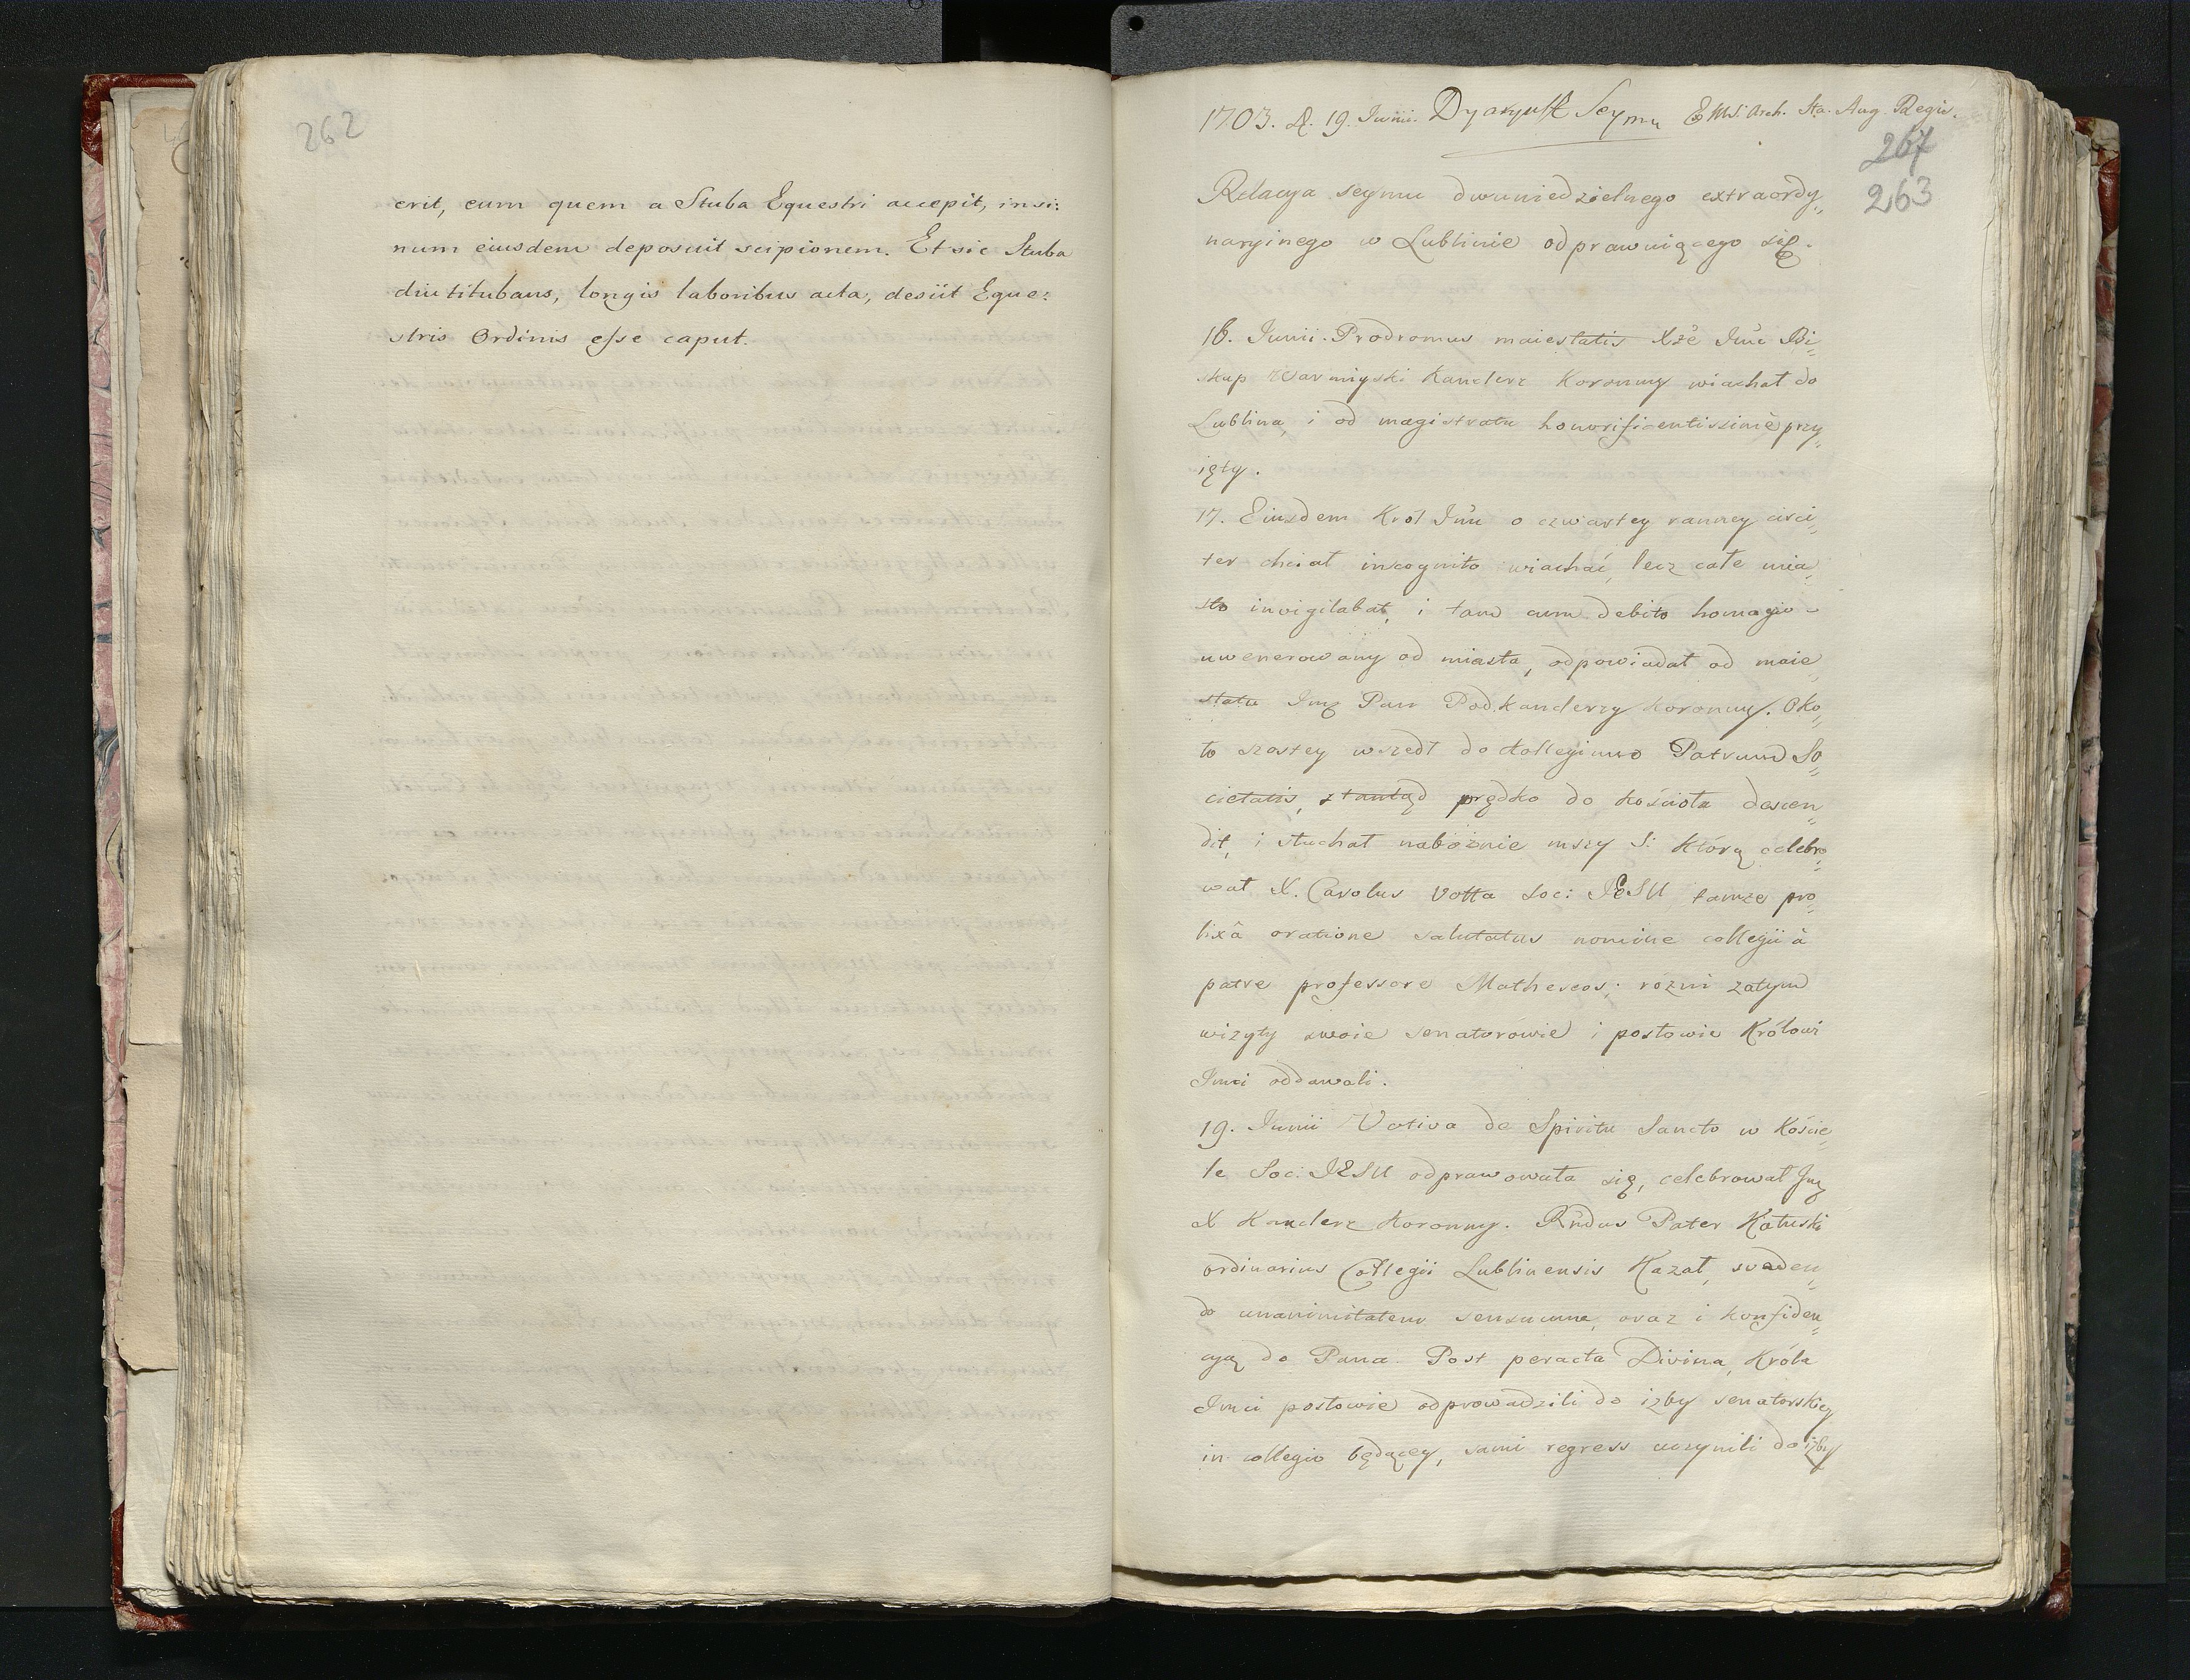 262
erit, eum quem a Stuba Equestri accepit, in si:
num eiusdem deposuit scipionem. Et sic Stuba
diu titubans, longis laboribus acta, desiit Eque:
stris Ordinis esse caput.
1703. d. 19. Junii. Dyaryusz Seymu E MS. Arch. Sta. Aug. Regis.
267
263
Relacya seymu dwuniedzielnego extraordy„
naryinego w Lublinie odprawuiącego się.
16. Junii. Prodromus maiestatis Xże Imć Bi„
skup Warmiyski Kanclerz Koronny wiachał do
Lublina, i od magistratu honorificentissimè przy„
ięty.
17. Eiusdem Krol Imć o czwartey ranney circi„
ter chciał incognito wiachać, lecz całe mia„
sto invigilabat, i tam cum debito homagio
uwenerowany od miasta, odpowiadał od maie„
statu Imę Pan Podkanclerzy Koronny. Oko„
ło szostey wszedł do Kollegium Patrum So„
cietatis, ztamtąd prędko do kościoła descen„
dit, i słuchał nabożnie mszy S: którą celebro„
wał X. Carolus Votta Soc: JESU, tamże pro„
lixâ oratione salutatus nomine collegii à
patre professore Matheseos; rożni zatym
wizyty swoie senatorowie i posłowie Królowi
Imci oddawali.
19. Junii Votiva de Spiritu Sancto w Kościе„
le Soc: JESU odprawowała się, celebrował Imę
X Kanclerz Koronny. Rńdus Pater Kałuski
ordinarius Collegii Lublinensis Kazał, svaden„
do unanimitatem sensuum, oraz i konfiden„
cyą do Pana. Post peracta Divina, Króla
Imci posłowie odprowadzili do izby senatorskiey
in collegio będącey, sami regress uczynili do izby